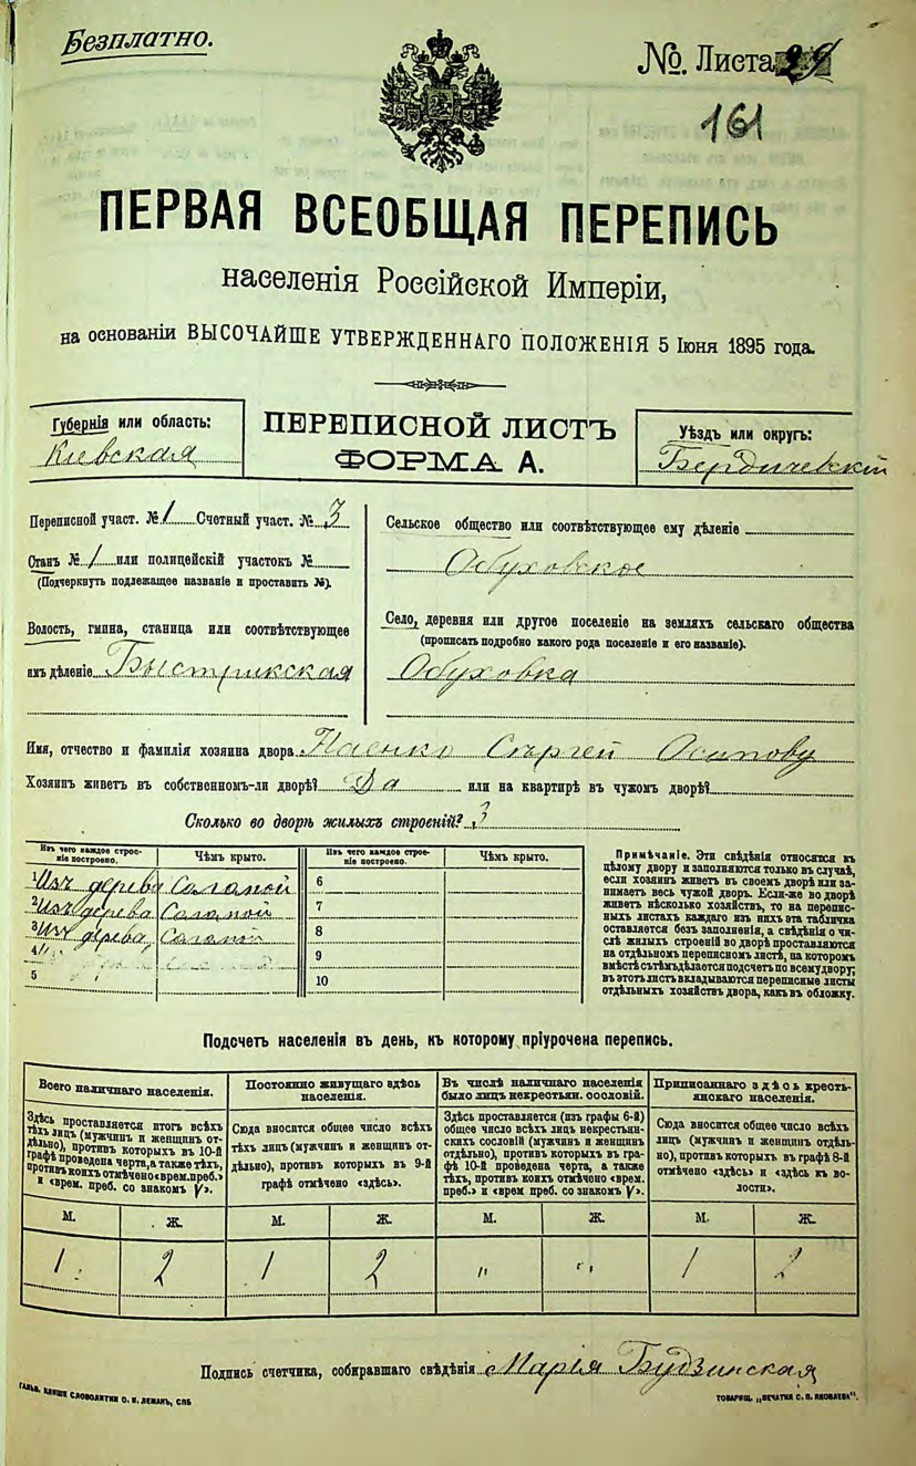 Безплатно.
№. Листа 29
161
ПЕРВАЯ ВСЕОБЩАЯ ПЕРЕПИСЬ
населенія Россійской Имперіи,
на основаніи ВЫСОЧАЙШЕ УТВЕРЖДЕННАГО ПОЛОЖЕНІЯ 5 Іюня 1895 года.
Губернія или область:
Киевская
ПЕРЕПИСНОЙ ЛИСТЪ
ФОРМА А.
Уѣздъ или округъ:
Бердичевскій
Переписной участ. № 1 Счетный участ. № 3
Станъ № 1 или полицейскій участокъ №
(Подчеркнуть подлежащее названіе и проставить №).
Волость, гмина, станица или соотвѣтствующее
имъ дѣленіе Быстрикская
Сельское общество или соотвѣтствующее ему дѣленіе
Обуховское
Село, деревня или другое поселеніе на земляхъ сельскаго общества
(прописать подробно какого рода поселеніе и его названіе).
Обуховка
Имя, отчество и фамилія хозяина двора Паенко Сергей Осипову
Хозяинъ живетъ въ собственномъ-ли дворѣ? Да или на квартирѣ въ чужомъ дворѣ?
Сколько во дворѣ жилыхъ строеній? 3
Изъ чего каждое строе-
ніе построено.
Чѣмъ крыто.
Изъ чего каждое строе-
ніе построено.
Чѣмъ крыто.
1 Изъ дерева Соломой 6
2 Изъ дерева Соломой 7
3 Изъ дерева, Соломой 8
4 9
5 10
Примѣчаніе. Эти свѣдѣнія относятся къ
цѣлому двору и заполняются только въ случаѣ,
если хозяинъ живетъ въ своемъ дворѣ или за-
нимаетъ весь чужой дворъ. Если-же во дворѣ
живетъ нѣсколько хозяйствъ, то на перепис-
ныхъ листахъ каждаго изъ нихъ эта табличка
оставляется безъ заполненія, а свѣдѣнія о чи-
слѣ жилыхъ строеній во дворѣ проставляются
на отдѣльномъ переписномъ листѣ, на которомъ
вмѣстѣ съ тѣмъ дѣлается подсчетъ по всему двору;
въ этотъ листъ вкладываются переписные листы
отдѣльныхъ хозяйствъ двора, какъ въ обложку.
Подсчетъ населенія въ день, къ которому пріурочена перепись.
Всего наличнаго населенія.
Здѣсь проставляется итогъ всѣхъ
тѣхъ лицъ (мужчинъ и женщинъ от-
дѣльно), противъ которыхъ въ 10-й
графѣ проведена черта, а также тѣхъ,
противъ коихъ отмѣчено «врем. преб.»
и «врем. преб. со знакомъ V».
Постоянно живущаго здѣсь
населенія.
Сюда вносится общее число всѣхъ
тѣхъ лицъ (мужчинъ и женщинъ от-
дѣльно), противъ которыхъ въ 9-й
графѣ отмѣчено «здѣсь».
Въ числѣ наличнаго населенія
было лицъ некрестьян. сословій.
Здѣсь проставляется (изъ графы 6-й)
общее число всѣхъ лицъ некрестьян-
скихъ сословій (мужчинъ и женщинъ
отдѣльно), противъ которыхъ въ гра-
фѣ 10-й проведена черта, а также
тѣхъ, противъ коихъ отмѣчено «врем.
преб.» и «врем. преб. со знакомъ V».
Приписаннаго здѣсь кресть-
янскаго населенія.
Сюда вносится общее число всѣхъ
лицъ (мужчинъ и женщинъ отдѣль-
но), противъ которыхъ въ графѣ 8-й
отмѣчено «здѣсь» и «здѣсь къ во-
лости».
М. Ж. М. Ж. М. Ж. М. Ж.
1 2 1 2 " " 1 2
Подпись счетчика, собиравшаго свѣдѣнія Марія Будзинская
ГАЛЬВ. КЛИШЕ СЛОВОЛИТНИ О. И. ЛЕМАНЪ, СПБ
ТОВАРИЩ. „ПЕЧАТНЯ С. П. ЯКОВЛЕВА".